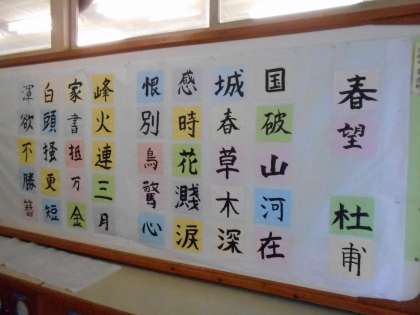 春望 杜甫
国破山河在
城春草木深
感時花濺涙
恨別鳥驚心
峰火連三月
家書抵万金
白頭掻更短
渾欲不勝簪